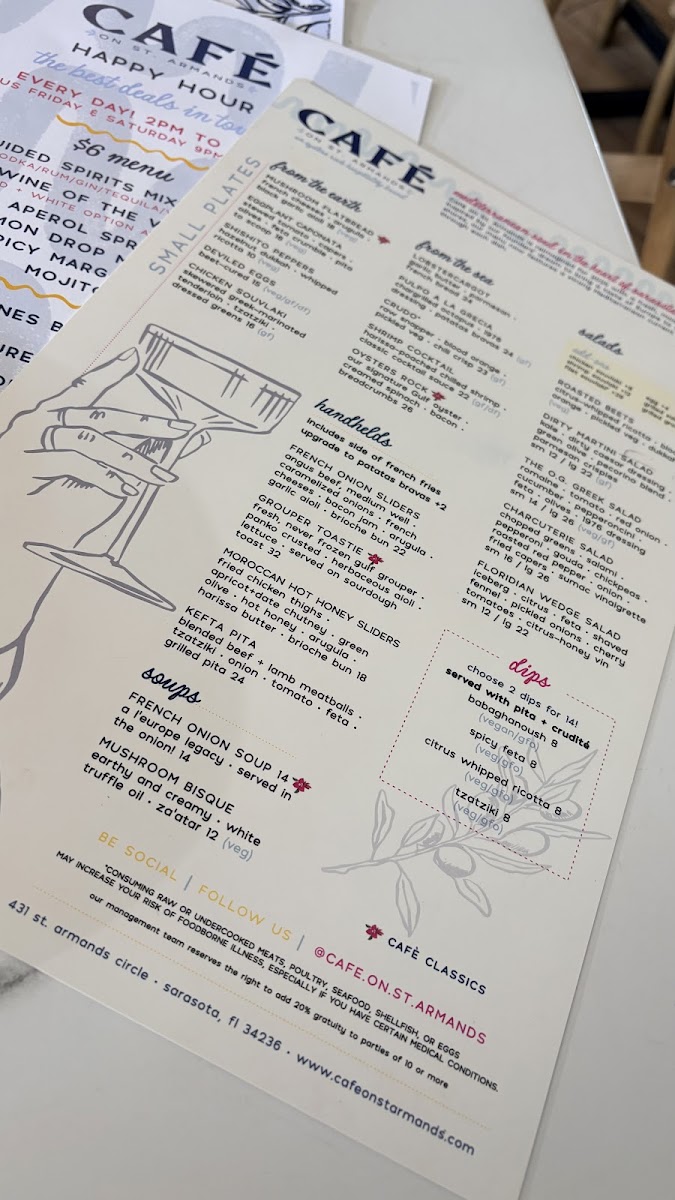 CAFÉ
ON ST. ARMANDS
HAPPY HOUR
the best deals in tow
EVERY DAY! 2PM TO
US FRIDAY & SATURDAY 9PM
$6 menu
UIDED SPIRITS MIX
ODKA/RUM/GIN/TEQUILA/
WINE OF THE
D + WHITE OPTION
APEROL SPR
MON DROP
PICY MARG
MOJITO
NES B
URE
CAFÉ
ON ST. ARMANDS
mediterranean soul in the heart of sarasota
SMALL PLATES
from the earth
MUSHROOM FLATBREAD
black garlic aioli 18 (veg)
EGGPLANT CAPONATA
olives · tomato · capers ·
whipped feta · crudité · pita
to scoop 16 (veg)
SHISHITO PEPPERS
hazelnut dukkah · whipped
ricotta 10 (veg)
DEVILED EGGS
beet-cured 15 (veg/gf/df)
CHICKEN SOUVLAKI
skewered greek-marinated
tenderloin · tzatziki ·
dressed greens 16 (gf)
from the sea
LOBSTERCARGOT
garlic butter · parmesan ·
PULPO A LA GRECIA
chargrilled octopus · 1976
dressing · patatas bravas 24 (gf)
CRUDO*
raw snapper · blood orange ·
pickled veg · chili crisp 23 (gf)
SHRIMP COCKTAIL
harissa-poached chilled shrimp ·
classic cocktail sauce 22 (gf/df)
OYSTERS ROCK
our signature Gulf oyster ·
creamed spinach · bacon ·
breadcrumbs 26
handhelds
includes side of french fries
upgrade to patatas bravas +2
FRENCH ONION SLIDERS
angus beef, medium well ·
caramelized onions · french
cheeses · bacon jam · arugula ·
garlic aioli · brioche bun 22
GROUPER TOASTIE
fresh, never frozen gulf grouper ·
panko crusted · herbaceous aioli ·
lettuce · served on sourdough
toast 32
MOROCCAN HOT HONEY SLIDERS
fried chicken thighs ·
apricot+date chutney · green
olive · hot honey · arugula ·
harissa butter · brioche bun 18
KEFTA PITA
blended beef + lamb meatballs ·
tzatziki · onion · tomato · feta ·
grilled pita 24
soups
FRENCH ONION SOUP 14
a l'europe legacy · served in
the onion! 14
MUSHROOM BISQUE
earthy and creamy · white
truffle oil · za'atar 12 (veg)
salads
add-ons
ROASTED BEETS
citrus-whipped ricotta ·
orange · pickled veg ·
(veg)
DIRTY MARTINI SALAD
kale · dirty caesar dressing ·
green olive · pecorino blend ·
parmesan crisps
sm 12 / lg 23 (gf)
THE O.G. GREEK SALAD
romaine · tomato · red onion ·
cucumber · pepperoncini ·
feta · olives · 1976 dressing
sm 14 / lg 26 (veg/gf)
CHARCUTERIE SALAD
chopped greens · salami ·
pepperoni · gouda · chickpeas ·
roasted red pepper · onion ·
fried capers · sumac vinaigrette
sm 16 / lg 26
FLORIDIAN WEDGE SALAD
iceberg · citrus · feta · shaved
fennel · pickled onions · cherry
tomatoes · citrus-honey vin
sm 12 / lg 22
dips
choose 2 dips for 14!
served with pita + crudité
babaghanoush 8
(vegan/gfo)
spicy feta 8
(veg/gfo)
citrus whipped ricotta 8
(veg/gfo)
tzatziki 8
(veg/gfo)
CAFÈ CLASSICS
BE SOCIAL | FOLLOW US | @CAFE.ON.ST.ARMANDS
*CONSUMING RAW OR UNDERCOOKED MEATS, POULTRY, SEAFOOD, SHELLFISH, OR EGGS
MAY INCREASE YOUR RISK OF FOODBORNE ILLNESS, ESPECIALLY IF YOU HAVE CERTAIN MEDICAL CONDITIONS.
our management team reserves the right to add 20% gratuity to parties of 10 or more
431 st. armands circle · sarasota, fl 34236 · www.cafeonstarmands.com